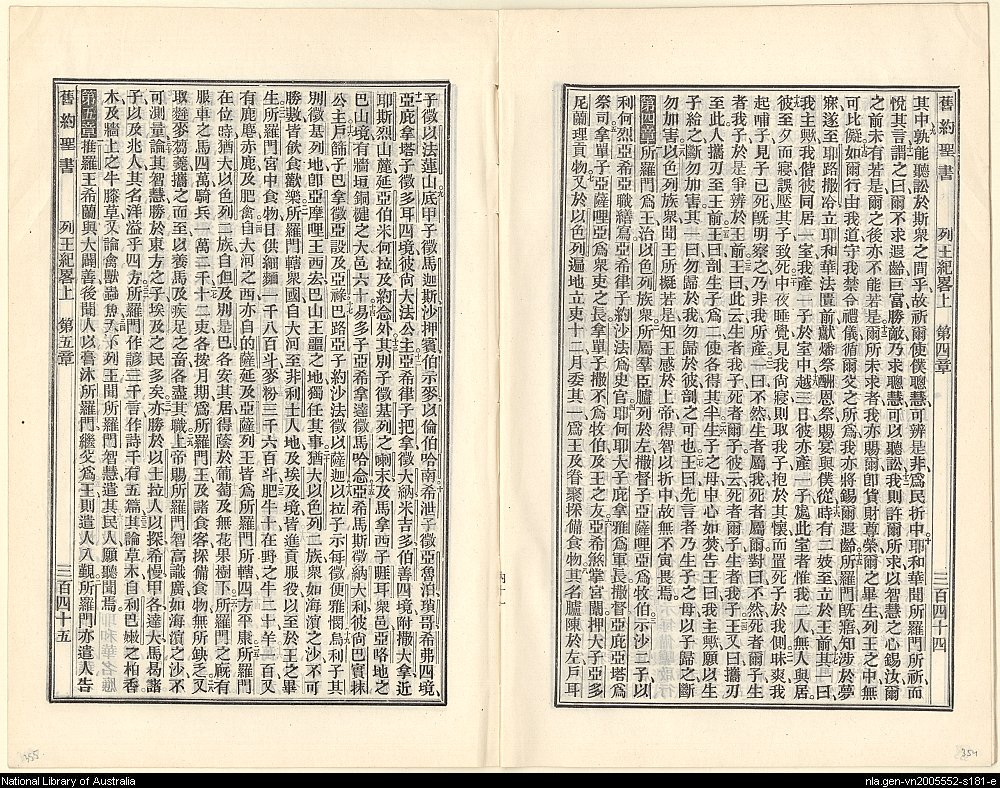 舊約聖書 列王紀畧上 第四章 三百四十四
其中孰能聽訟於斯衆之間乎故祈爾使僕聰慧可辨是非爲民折中耶和華聞所羅門所祈而
悅其言謂之曰爾不求遐齡巨富勝敵乃求聰慧可以聽訟我則許爾所求以智慧之心錫汝爾
之前未有若是爾之後亦不能若是爾所未求者我亦賜爾卽貨財尊榮爾之畢生列王之中無
可比儗如爾行由我道守我禁令禮儀循爾父之所爲我亦將錫爾遐齡所羅門旣寤知涉於夢
寐遂至耶路撒冷立耶和華法匱前獻燔祭酬恩祭賜宴與僕從時有二妓至立於王前其一曰
我主歟我偕彼同居一室我產一子於室中越三日彼亦產一子處此室者惟我二人無人與居
彼至夕而寢誤壓其子致死中夜睡覺見我尙寢則取我子抱於其懷而置死子於我側昧爽我
起哺子見子已死旣明察之乃非我所產一曰不然生者屬我死者屬爾對曰不然死者爾子生
者我子於是爭辨於王前王曰此云生者我子死者爾子彼云死者爾子生者我子王又曰攜刃
至此人攜刃至王前王曰剖生子爲二使各得其半生子之母中心如焚告王曰我主歟願以生
子給之斷勿加害其一曰勿歸於我勿歸於彼剖之可也王曰先言者乃生子之母以子歸之斷
勿加害以色列族衆聞王所擬若是知王感於上帝得智以折中故無不寅畏焉
第四章所羅門爲王治以色列族衆所屬羣臣臚列於左撒督子亞薩哩亞爲牧伯示沙二子以
利何烈亞希亞職繕寫亞希律子約沙法爲史官耶何耶大子庇拿雅爲軍長撒督亞庇亞塔爲
祭司拿單子亞薩哩亞爲衆吏之長拿單子撒不爲牧伯及王之友亞希煞掌宮闈押大子亞多
尼蘭理貢物又於以色列遍地立吏十二月委其一爲王及眷聚採備食物其名臚陳於左戶耳
舊約聖書 列王紀畧上 第五章 三百四十五
子徵以法蓮山底甲子徵馬迦斯沙押賓伯示麥以倫伯哈南希泄子徵亞魯泊瑣哥希弗四境
亞庇拿塔子徵多耳四境彼尙大法公主亞希律子把拿徵大納米吉多伯善四境附撒大拿近
耶斯烈山麓延亞伯米何拉及約念外其別子徵基列之喇末及馬拿西子睚耳衆邑亞咯地之
巴山境有牆垣銅楗之大邑六十易多子亞希拿達徵馬哈念亞希馬斯徵納大利彼尙巴實抹
公主戶篩子巴拿徵亞設及亞祿巴路亞子約沙法徵以薩迦以拉子示每徵便雅憫烏利子其
別徵基列地卽亞摩哩王西宏巴山王噩之地獨任其事猶大以色列二族衆如海濱之沙不可
勝數皆飲食歡樂所羅門轄衆國自大河至非利士人地及埃及境皆進貢服役以至於王之畢
生所羅門宮中食物日供細麵一千八百斗麥粉三千六百斗肥牛十在野之牛二十羊一百又
有鹿麀赤鹿及肥禽自大河之西亦自的薩延及亞薩列王皆爲所羅門所轄四方平康所羅門
在位時猶大以色列二族自但及別是巴各安其居得蔭於葡萄及無花果樹下所羅門之廐有
服車之馬四萬騎兵一萬二千十二吏各按月期爲所羅門王及諸食客採備食物無所缺乏又
取麰麥芻蕘攜之而至以養馬及疾足之畜各盡其職上帝賜所羅門智富識廣如海濱之沙不
可測量論其智慧勝於東方之子埃及之民多矣亦勝於以士拉人以探希慢甲各達大馬曷諸
子以及兆人其名洋溢乎四方所羅門作諺三千言作詩千有五篇其論草木自利巴嫩之柏香
木及牆上之牛膝草又論禽獸蟲魚天下列王聞所羅門智慧遣其民人願聽聞焉
第五章推羅王希蘭與大闢善後聞人以膏沐所羅門繼父爲王則遣人入覲所羅門亦遣人告
355
354
National Library of Australia
nla.gen-vn2005552-s181-e